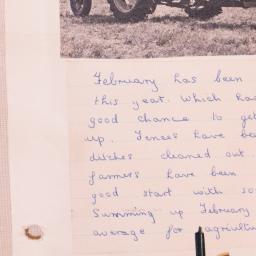 February has been
this year. Which has
good chance to get
up. Fences have been
ditches cleaned out.
farmers have been
good start with so
Summing up February
average for agricultu